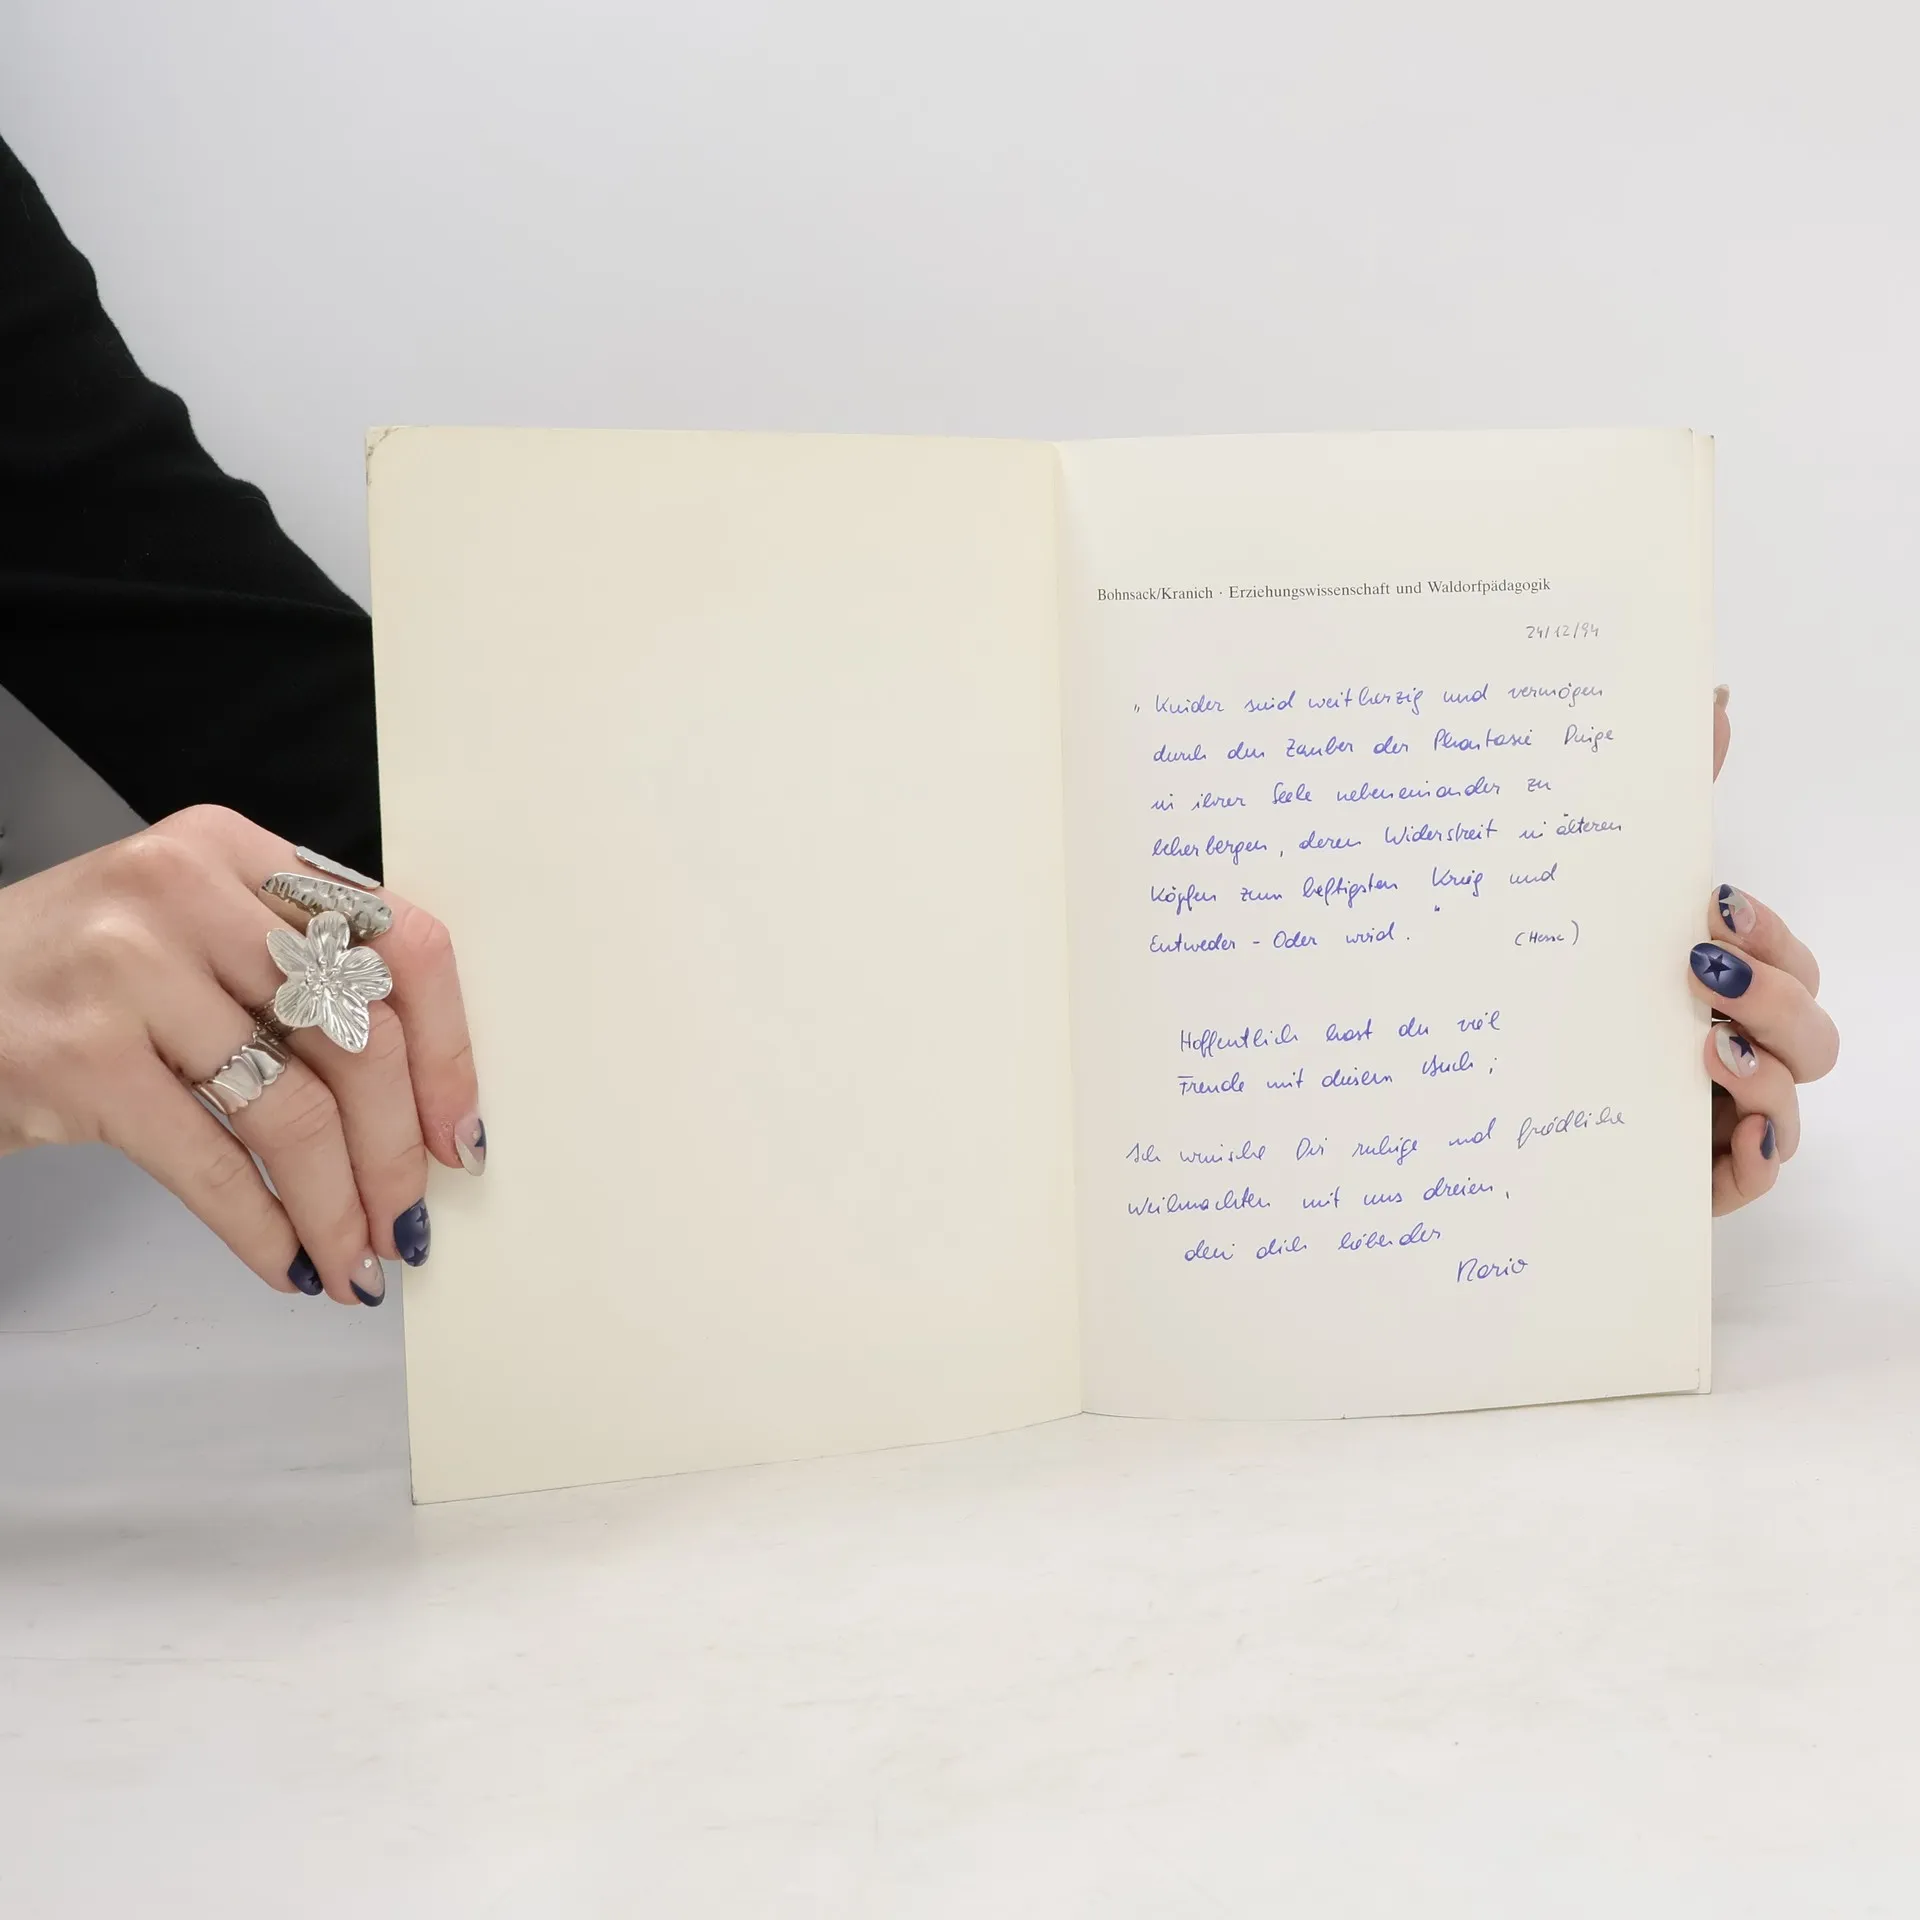 Bohnsack/Kranich · Erziehungswissenschaft und Waldorfpädagogik
24/12/94
„ Kinder sind weitherzig und vermögen
durch den Zauber der Phantasie Dinge
in ihrer Seele nebeneinander zu
beherbergen, deren Widerstreit in älteren
Köpfen zum heftigsten Krieg und
Entweder - Oder wird. " (Hesse)
Hoffentlich hast du viel
Freude mit diesem Buch ;
Ich wünsche Dir ruhige und friedliche
Weihnachten mit uns dreien,
dein dich liebender
Mario